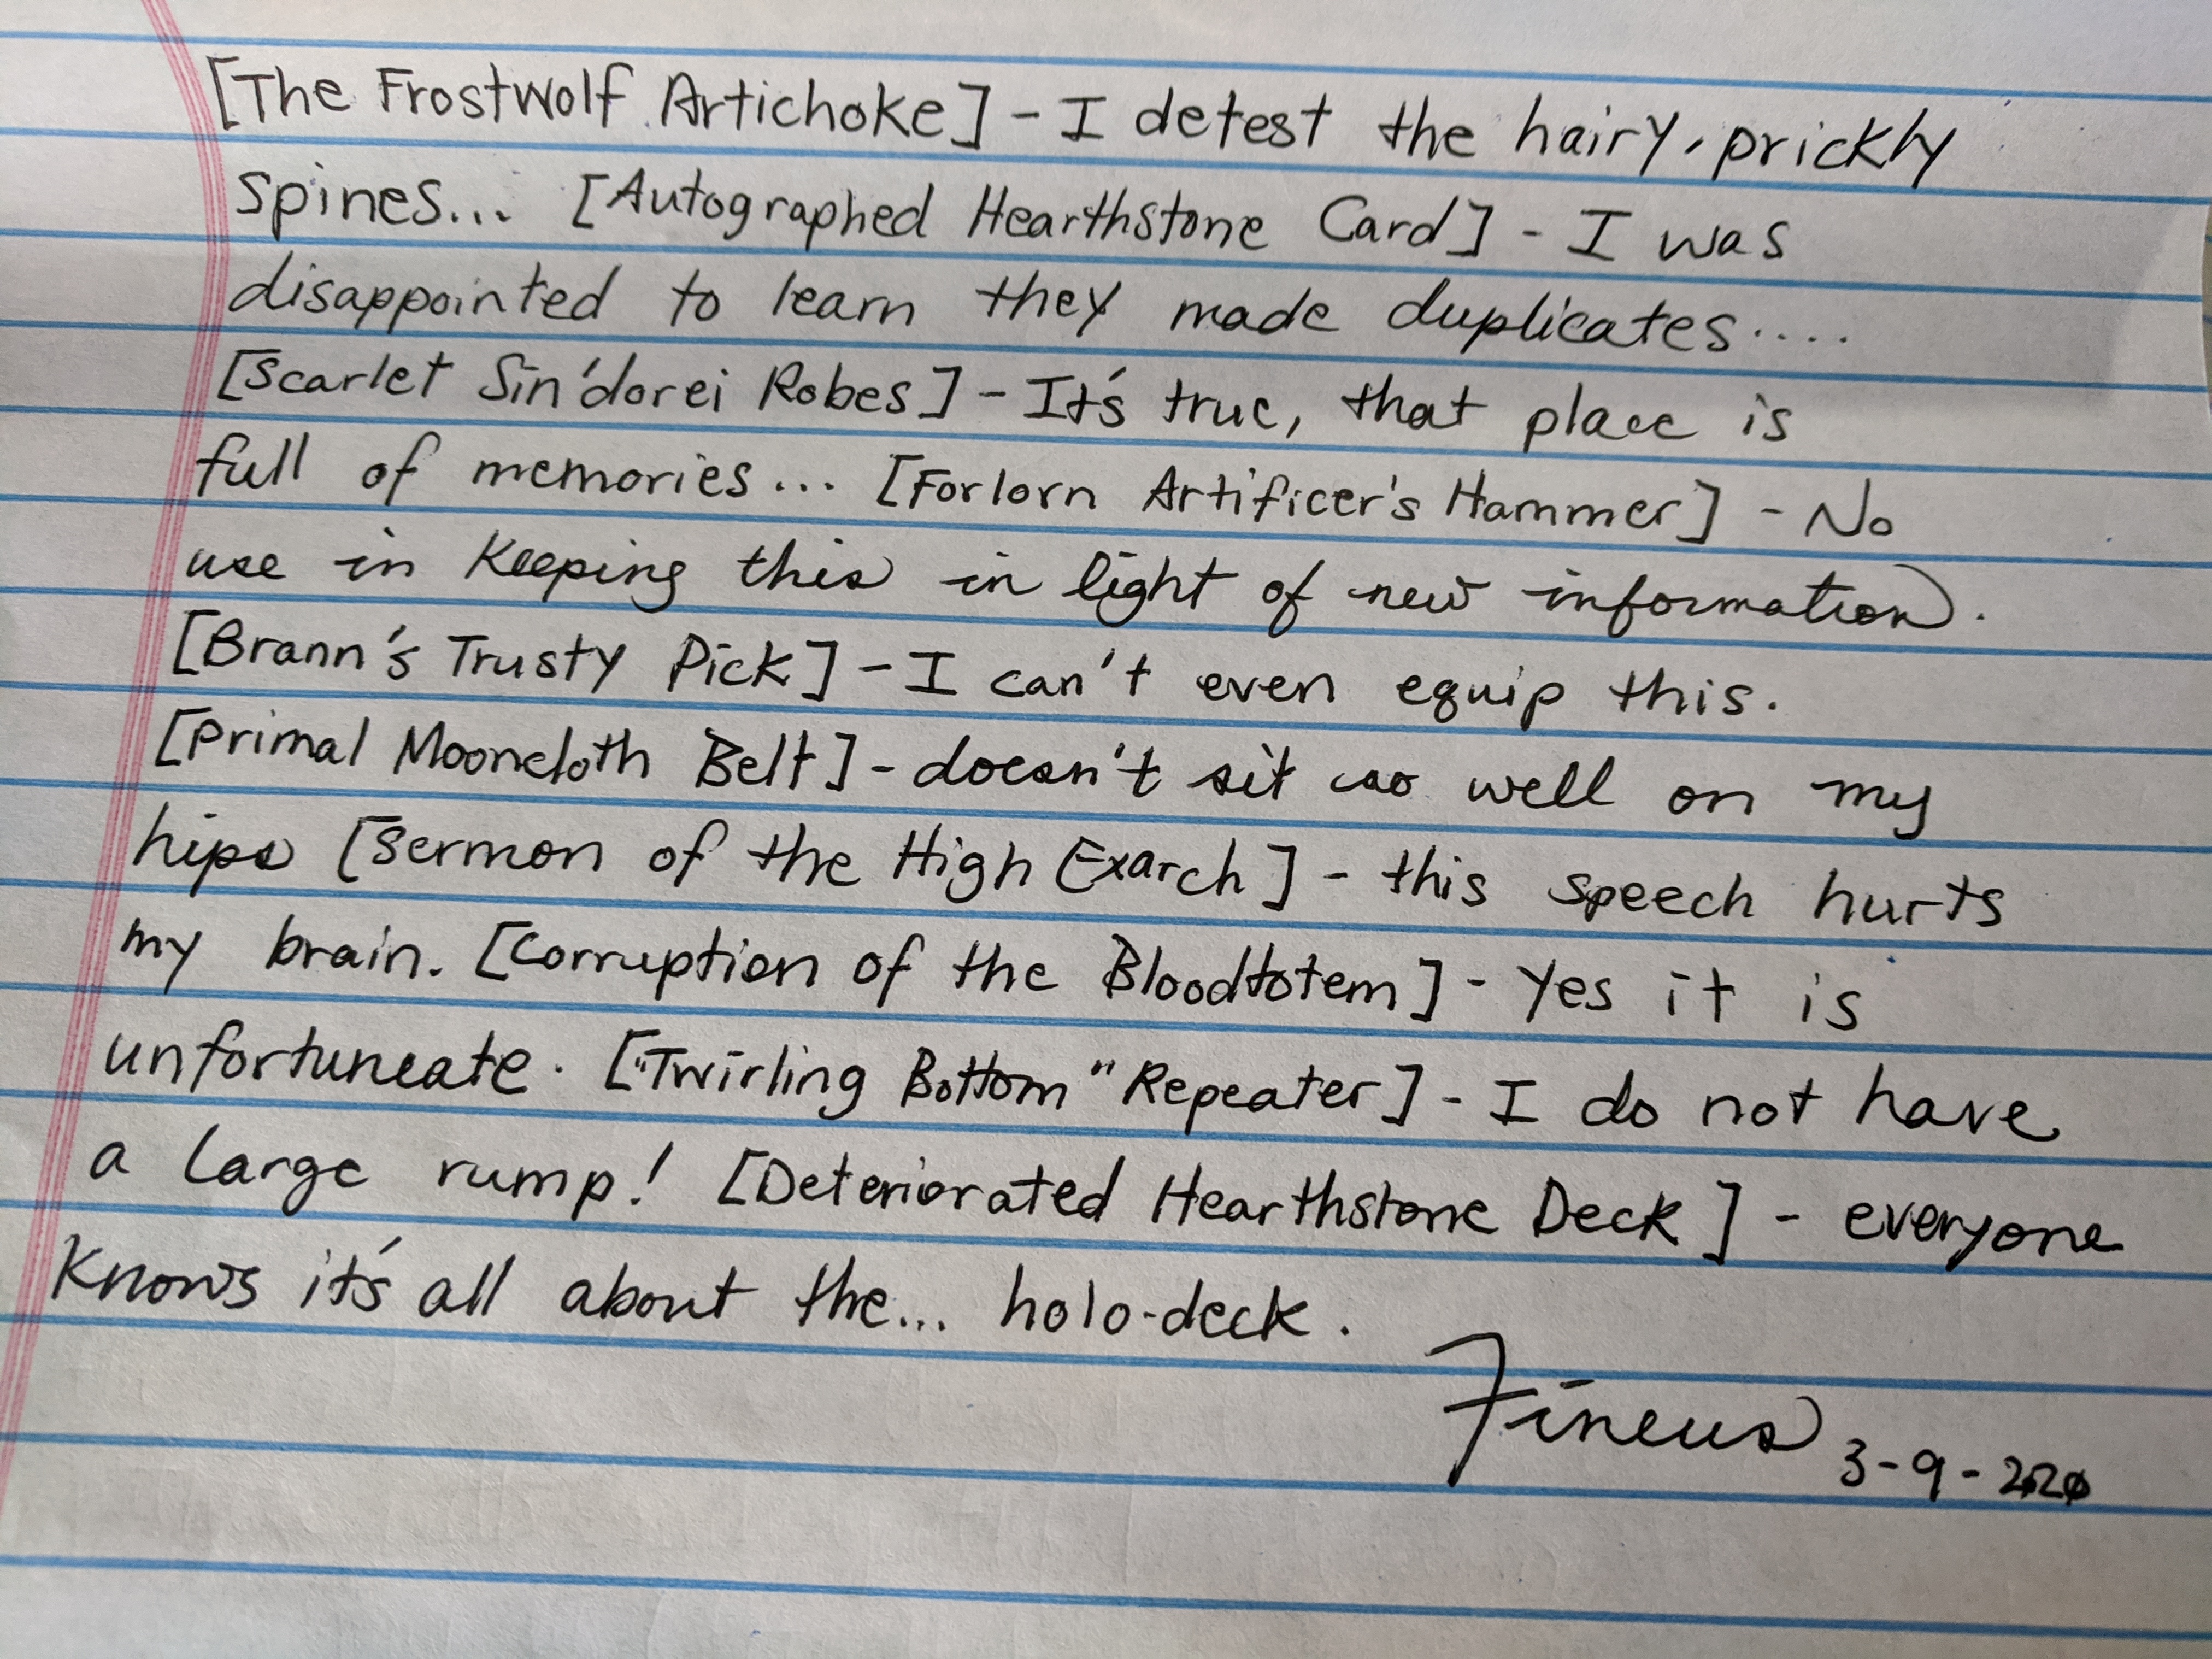 [The Frostwolf Artichoke] - I detest the hairy, prickly
spines... [Autographed Hearthstone Card] - I was
disappointed to learn they made duplicates....
[Scarlet Sin'dorei Robes] - It's true, that place is
full of memories... [Forlorn Artificer's Hammer] - No
use in keeping this in light of new information.
[Brann's Trusty Pick] - I can't even equip this.
[Primal Mooncloth Belt] - doesn't sit as well on my
hips [Sermon of the High Exarch] - this speech hurts
my brain. [Corruption of the Bloodtotem] - Yes it is
unfortuneate. ["Twirling Bottom" Repeater] - I do not have
a large rump! [Deteriorated Hearthstone Deck] - everyone
knows it's all about the... holo-deck.
Fineus 3-9-2020